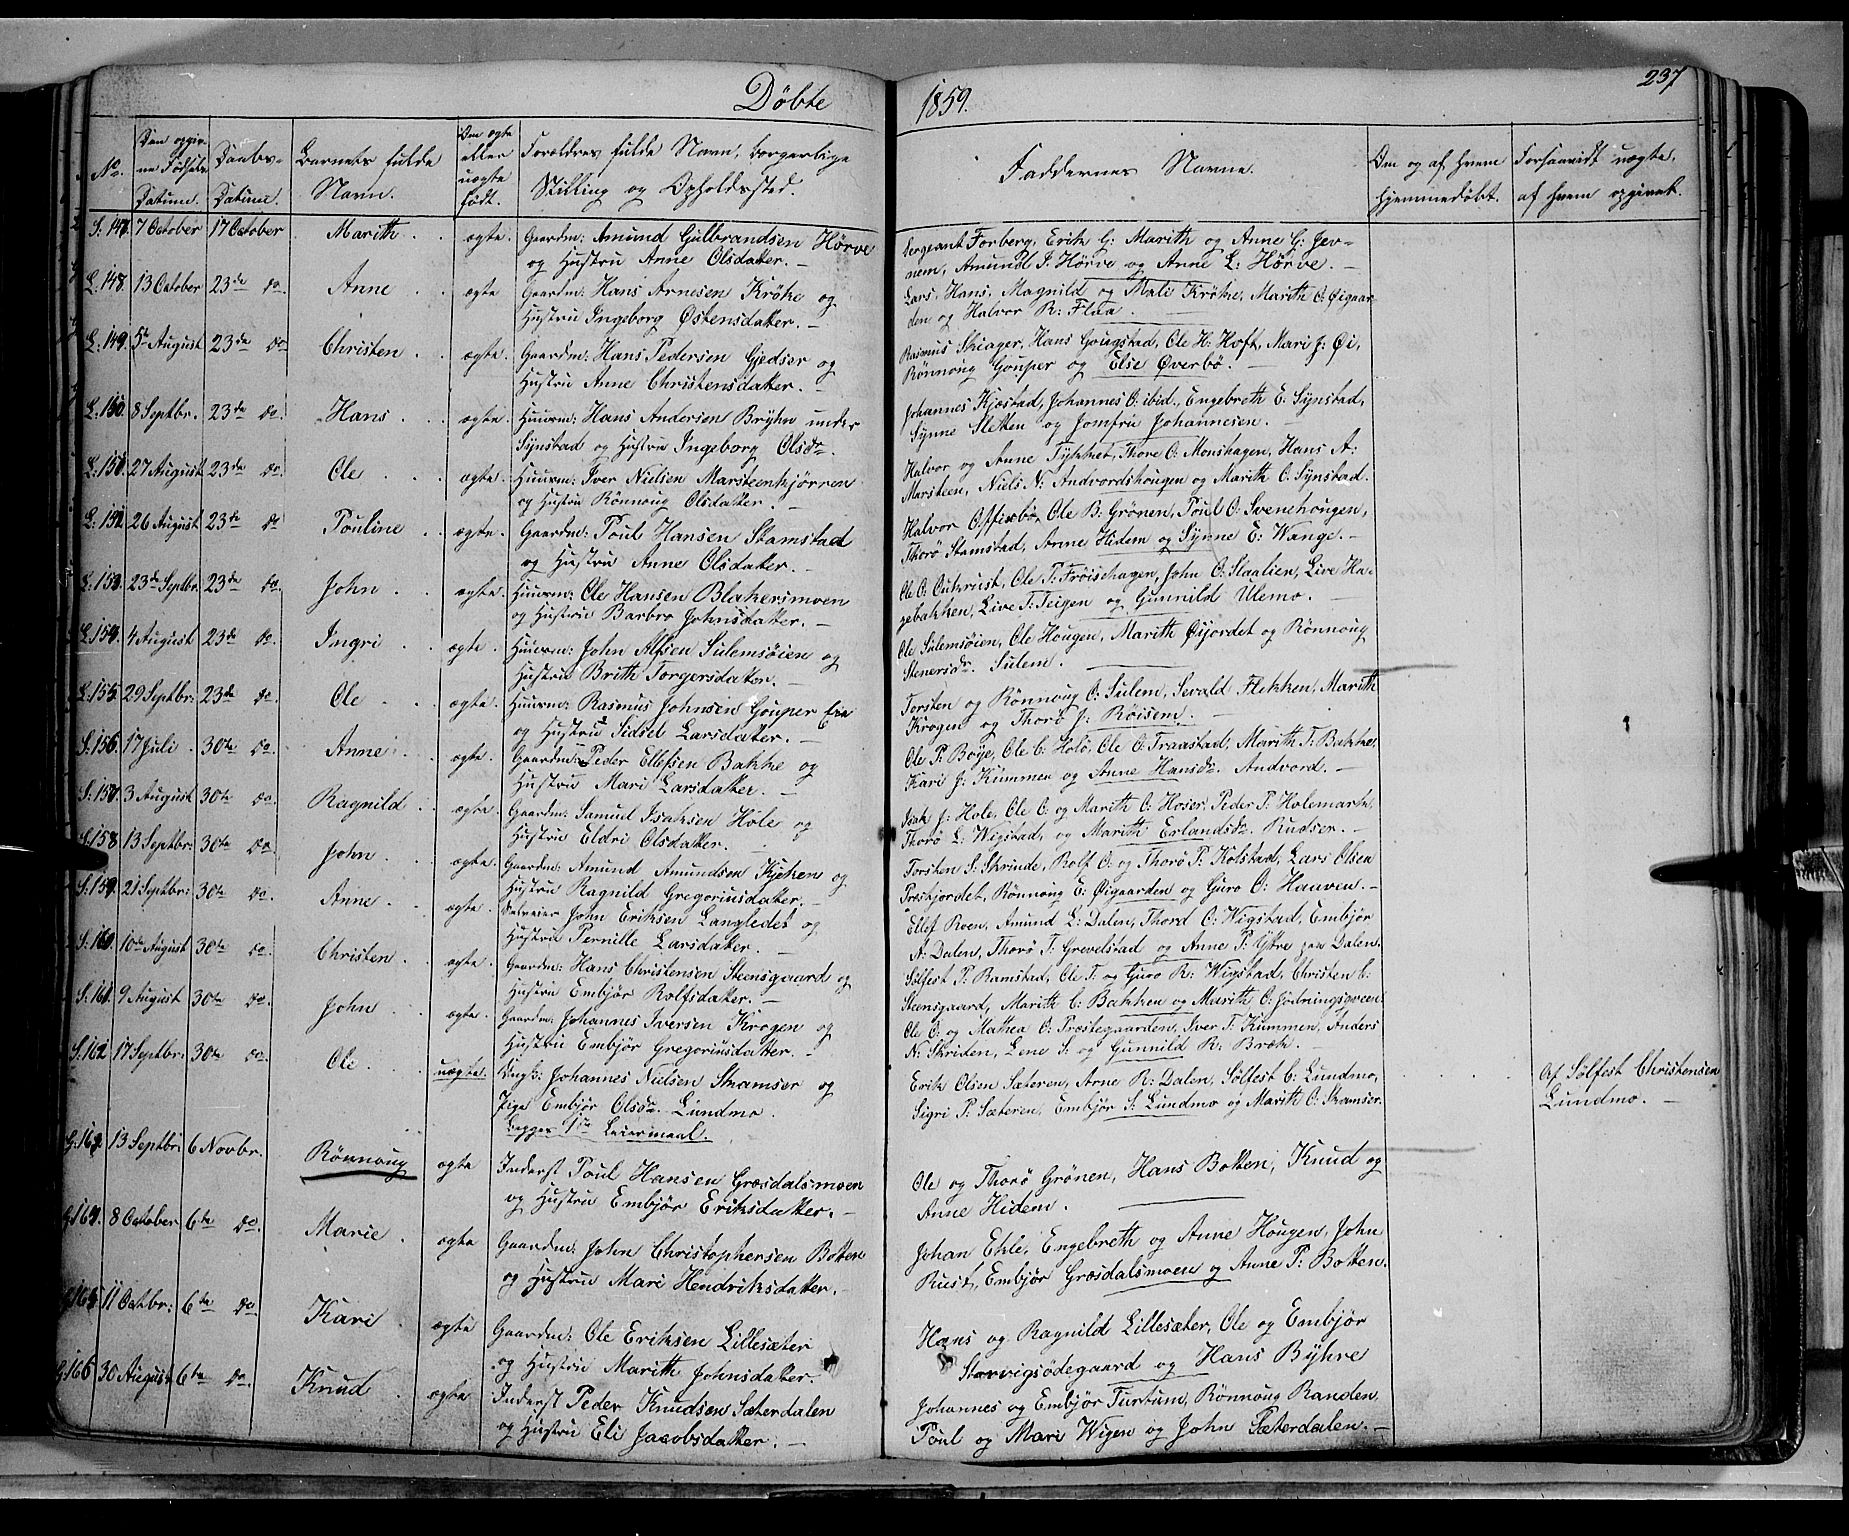 Döbte
1859.
237
No.
Den opgivne Fødsels Datum.
Daabs-Datum.
Barnets fulde Navn.
Om ægte eller uægte født.
Forældres fulde Navn, borgerlige Stilling og Opholdssted.
Faddernes Navne.
Om og af hvem hjemmedøbt.
Forsaavidt uægte, af hvem opgivet.
S: 147. 7 October 17 October Marith. ægte. Gaardm: Amund Gulbrandsen Hörve
og Hustru Anne Olsdatter. –
Sergeant Forberg, Erik G: Marith og Anne G: Jev-
nem, Amund P. Hörve og Anne L: Hörve. –
L. 148. 13 October 23de do. Anne ægte Gaardm: Hans Arnesen Kröke og
Hustru Ingeborg Östensdatter. –
Lars, Hans, Magnild og Mali Kröke, Marith O: Øigaar-
den og Halvor R: Flaa. –
L: 149. 5te August 23de do Christen ægte. Gaardm: Hans Pedersen Gjedser og
Hustru Anne Christensdatter. –
Rasmus Skiager, Hans Gougstad, Ole H: Hoft, Mari J: Øi,
Rönnoug Gouper og Else Øverbö. –
L. 150. 8 Septbr. 23de do. Hans ægte. Huusm: Hans Andersen Bryhn under
Synstad og Hustru Ingeborg Olsdr.
Johannes Kjæstad, Johannes O: ibid., Engebreth E: Synstad,
Synne Sletten og Jomfru Johannesen. –
L. 151. 27 August 23de do. Ole ægte. Huusm: Iver Nielsen Marsteenkjörren
og Hustru Rönnoug Olsdatter. –
Halvor og Anne Tykket, Thore O: Monshagen, Hans A:
Marsteen, Niels N: Andvordshougen og Marith O: Synstad.
L: 152. 26 August 23de do Pouline ægte. Gaardm: Poul Hansen Stamstad
og Hustru Anne Olsdatter. –
Halvor Offigsbö, Ole B: Grönen, Poul O: Svenehougen,
Thorö Stamstad, Anne Hidem og Synne E: Wange. –
L. 153. 23de Septbr. 23de do. John ægte. Huusm: Ole Hansen Blakersmoen
og Hustru Barbro Johnsdatter. –
Ole O: Ouhrust, Ole T: Fröisehagen, John O: Slaalien, Live Ha-
gebakken, Live T: Teigen og Gunnild Ulemo. –
L. 154. 4 August 23de do. Ingri ægte. Huusm: John Alfsen Sulemsöien og
Hustru Brith Torgersdatter. –
Ole Sulemsöien, Ole Hougen, Marith Øyjordet og Rönnoug
Stenersdr. Sulem. –
L. 155. 29 Septbr: 23de do. Ole ægte. Huusm: Rasmus Johnsen Gouper Eie
og Hustru Sidsel Larsdatter. –
Torsten og Rönnoug O: Sulem, Sevald Flekken, Marith
Krogen og Thorö J: Röisem. –
S. 156. 17 Juli 30te do. Anne ægte. Gaardm: Peder Ellefsen Bakke og
Hustru Mari Larsdatter. –
Ole P: Böye, Ole C: Holö, Ole O: Traastad, Marith T: Bakke,
Kari J: Kummen og Anne Hansdr. Andvord. –
S. 157. 3 August 30te do. Ragnild ægte. Gaardm: Samuel Isaksen Hole og
Hustru Eldri Olsdatter. –
Isak J: Hole, Ole O: og Marith O: Hoser, Peder P: Holemark,
Thorö L: Wigstad, og Marith Erlandsdr. Rudser. –
S. 158 13 Septbr: 30te do. John ægte. Gaardm: Amund Amundsen Kjöken og
Hustru Ragnild Gregoriusdatter. –
Torsten S: Skrinde, Rolf O: og Thorö P: Kolstad, Lars Olsen
Præstjordet, Rönnoug E: Øigaarden og Guro O: Haaven. –
S. 159. 21 Septbr: 30te do. Anne ægte. Selveier John Eriksen Langledet og
Hustru Pernille Larsdatter. –
Ellef Roen, Amund L: Dalen, Thord O: Wigstad, Embjör
A: Dalen, Thorö T: Grevelstad og Anne P: Yttre paa Dalen.
S: 160. 10de August 30te do. Christen ægte. Gaardm: Hans Christensen Steensgaard og
Hustru Embjör Rolfsdatter. –
Sölfest P: Ramstad, Ole T: og Guro R: Wigstad, Christen C:
Steensgaard, Marith C: Bakken og Marith O: Gödningsqveen
S: 161. 9 August 30te do. John ægte. Gaardm: Johannes Iversen Krogen og
Hustru Embjör Gregoriusdatter. –
Ole O: og Mathea O: Præstegaarden, Iver T: Kummen, Anders
N: Skriden, Lene S: og Gunnild R: Bræk.
S: 162 17 Septbr: 30te do. Ole uægte. Ungk: Johannes Nielsen Skamser og
Pige Embjör Olsdr. Lundmo.
Begges 1ste Leiermaal.
Erik Olsen Sæteren, Arne R: Dalen, Sölfest C: Lundmo,
Sigri P: Sæteren, Embjör S: Lundmo og Marith O: Skamser.
Af Sölfest Christensen
Lundmo. –
G: 163. 13 Septbr: 6 Novbr. Rönnoug ægte Inderst Poul Hansen Græsdalsmoen
og Hustru Embjör Eriksdatter. –
Ole og Thorö Grönen, Hans Botten, Knud og
Anne Hidem. –
G. 164. 8 October 6te do. Marie ægte Gaardm: John Christophersen Botten
og Hustru Mari Hendriksdatter. –
Johan Ehle, Engebreth og Anne Hougen, John
Rust, Embjör Græsdalsmoen og Anne P: Botten.
G. 165 11 Octbr: 6te do. Kari ægte Gaardm: Ole Eriksen Lillesæter
og Hustru Marith Johnsdatter.
Hans og Ragnild Lillesæter, Ole og Embjör
Storvigsödegaard og Hans Byhre
G. 166 30 August 6te do. Knud ægte Inderst Peder Knudsen Sæterdalen
og Hustru Eli Jacobsdatter. –
Johannes og Embjör Turtum, Rönnoug Randen,
Poul og Mari Wigen og John Sæterdalen. –